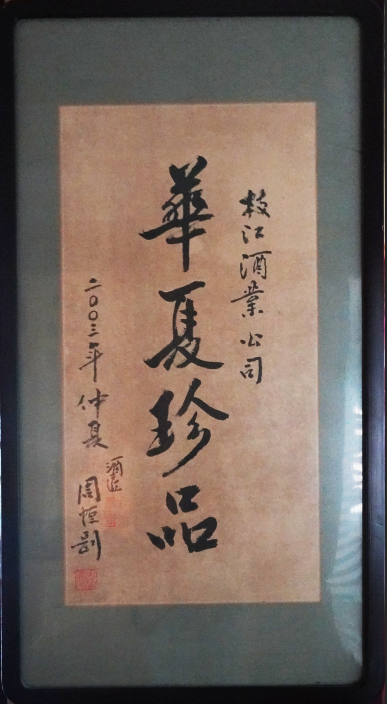 枝江酒業公司
華夏珍品
二〇〇三年仲夏
周恒剛